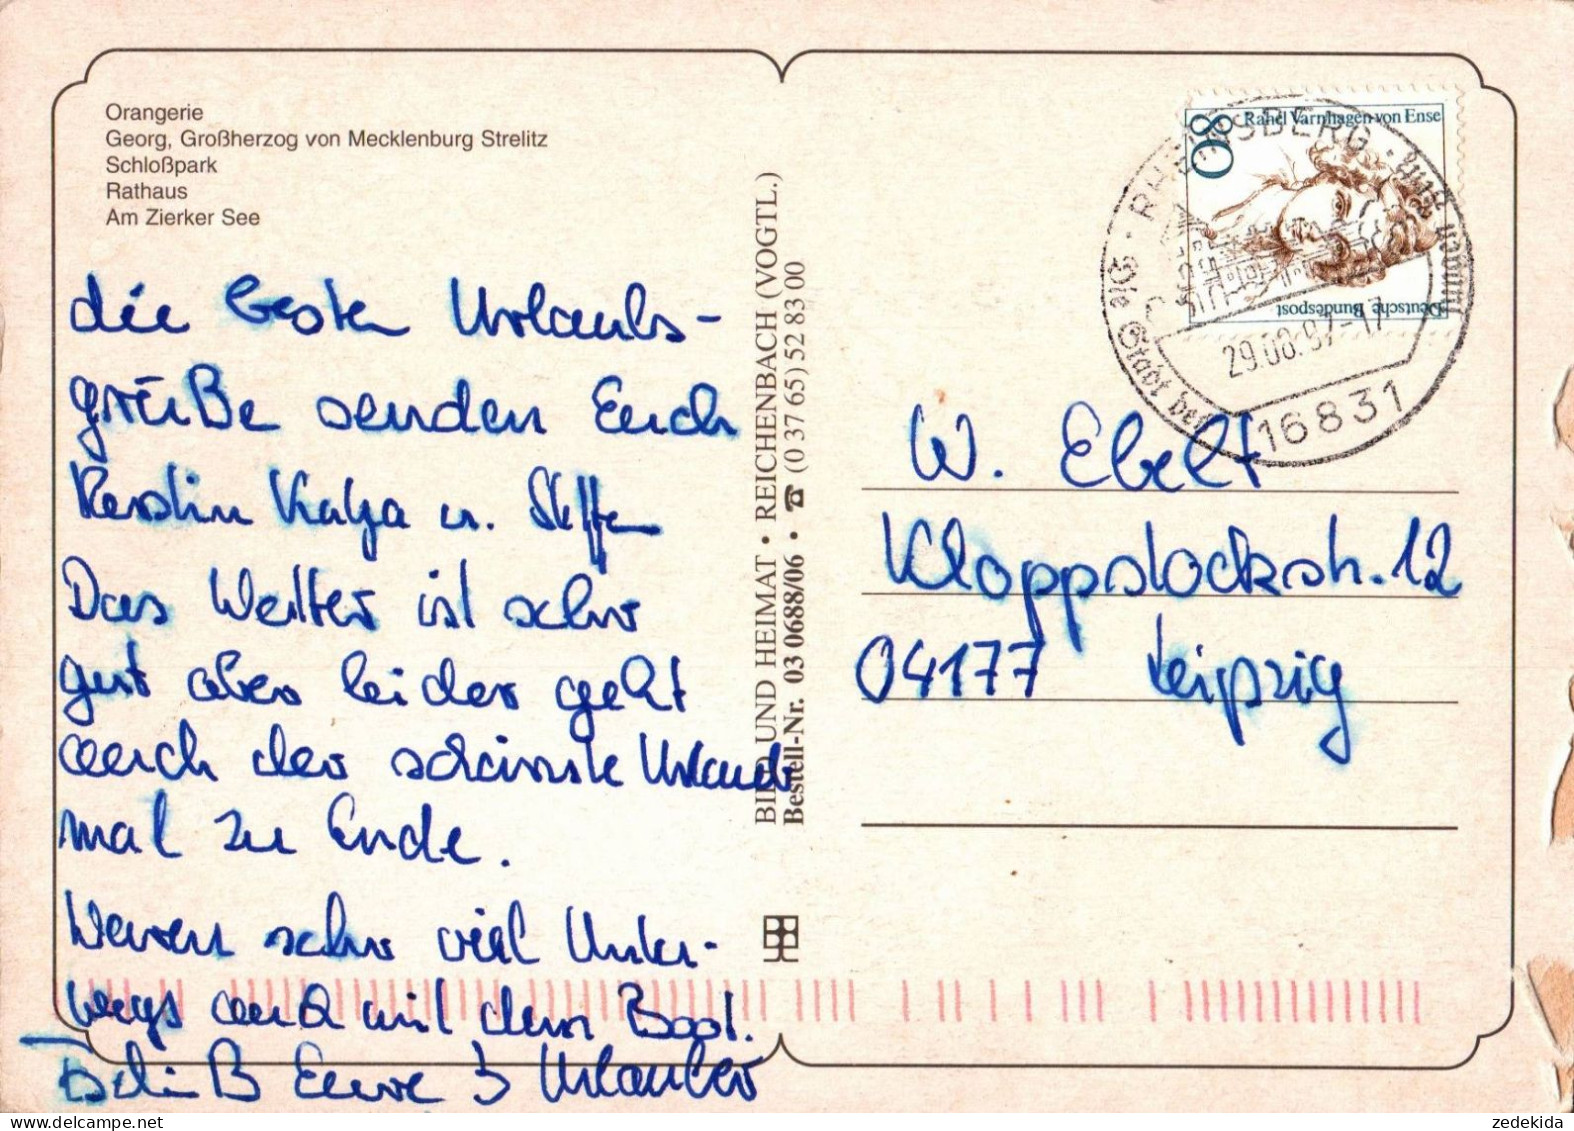 Orangerie
Georg, Großherzog von Mecklenburg Strelitz
Schloßpark
Rathaus
Am Zierker See
die besten Urlaubs-
grüße senden Euch
Kerstin Katja u. Steffen
Das Wetter ist sehr
gut aber leider geht
auch der schönste Urlaub
mal zu Ende.
Waren sehr viel Unter-
wegs auch mit dem Boot.
Tschüß Eure 3 Urlauber
BILD UND HEIMAT • REICHENBACH (VOGTL.)
Bestell-Nr. 03 0688/06 • ☎ (0 37 65) 52 83 00
80
Rahel Varnhagen von Ense
Deutsche Bundespost
RHEINSBERG
Die Stadt der
29.08.97-17
16831
W. Ebelt
Kloppstockstr. 12
04177 Leipzig
zedekida